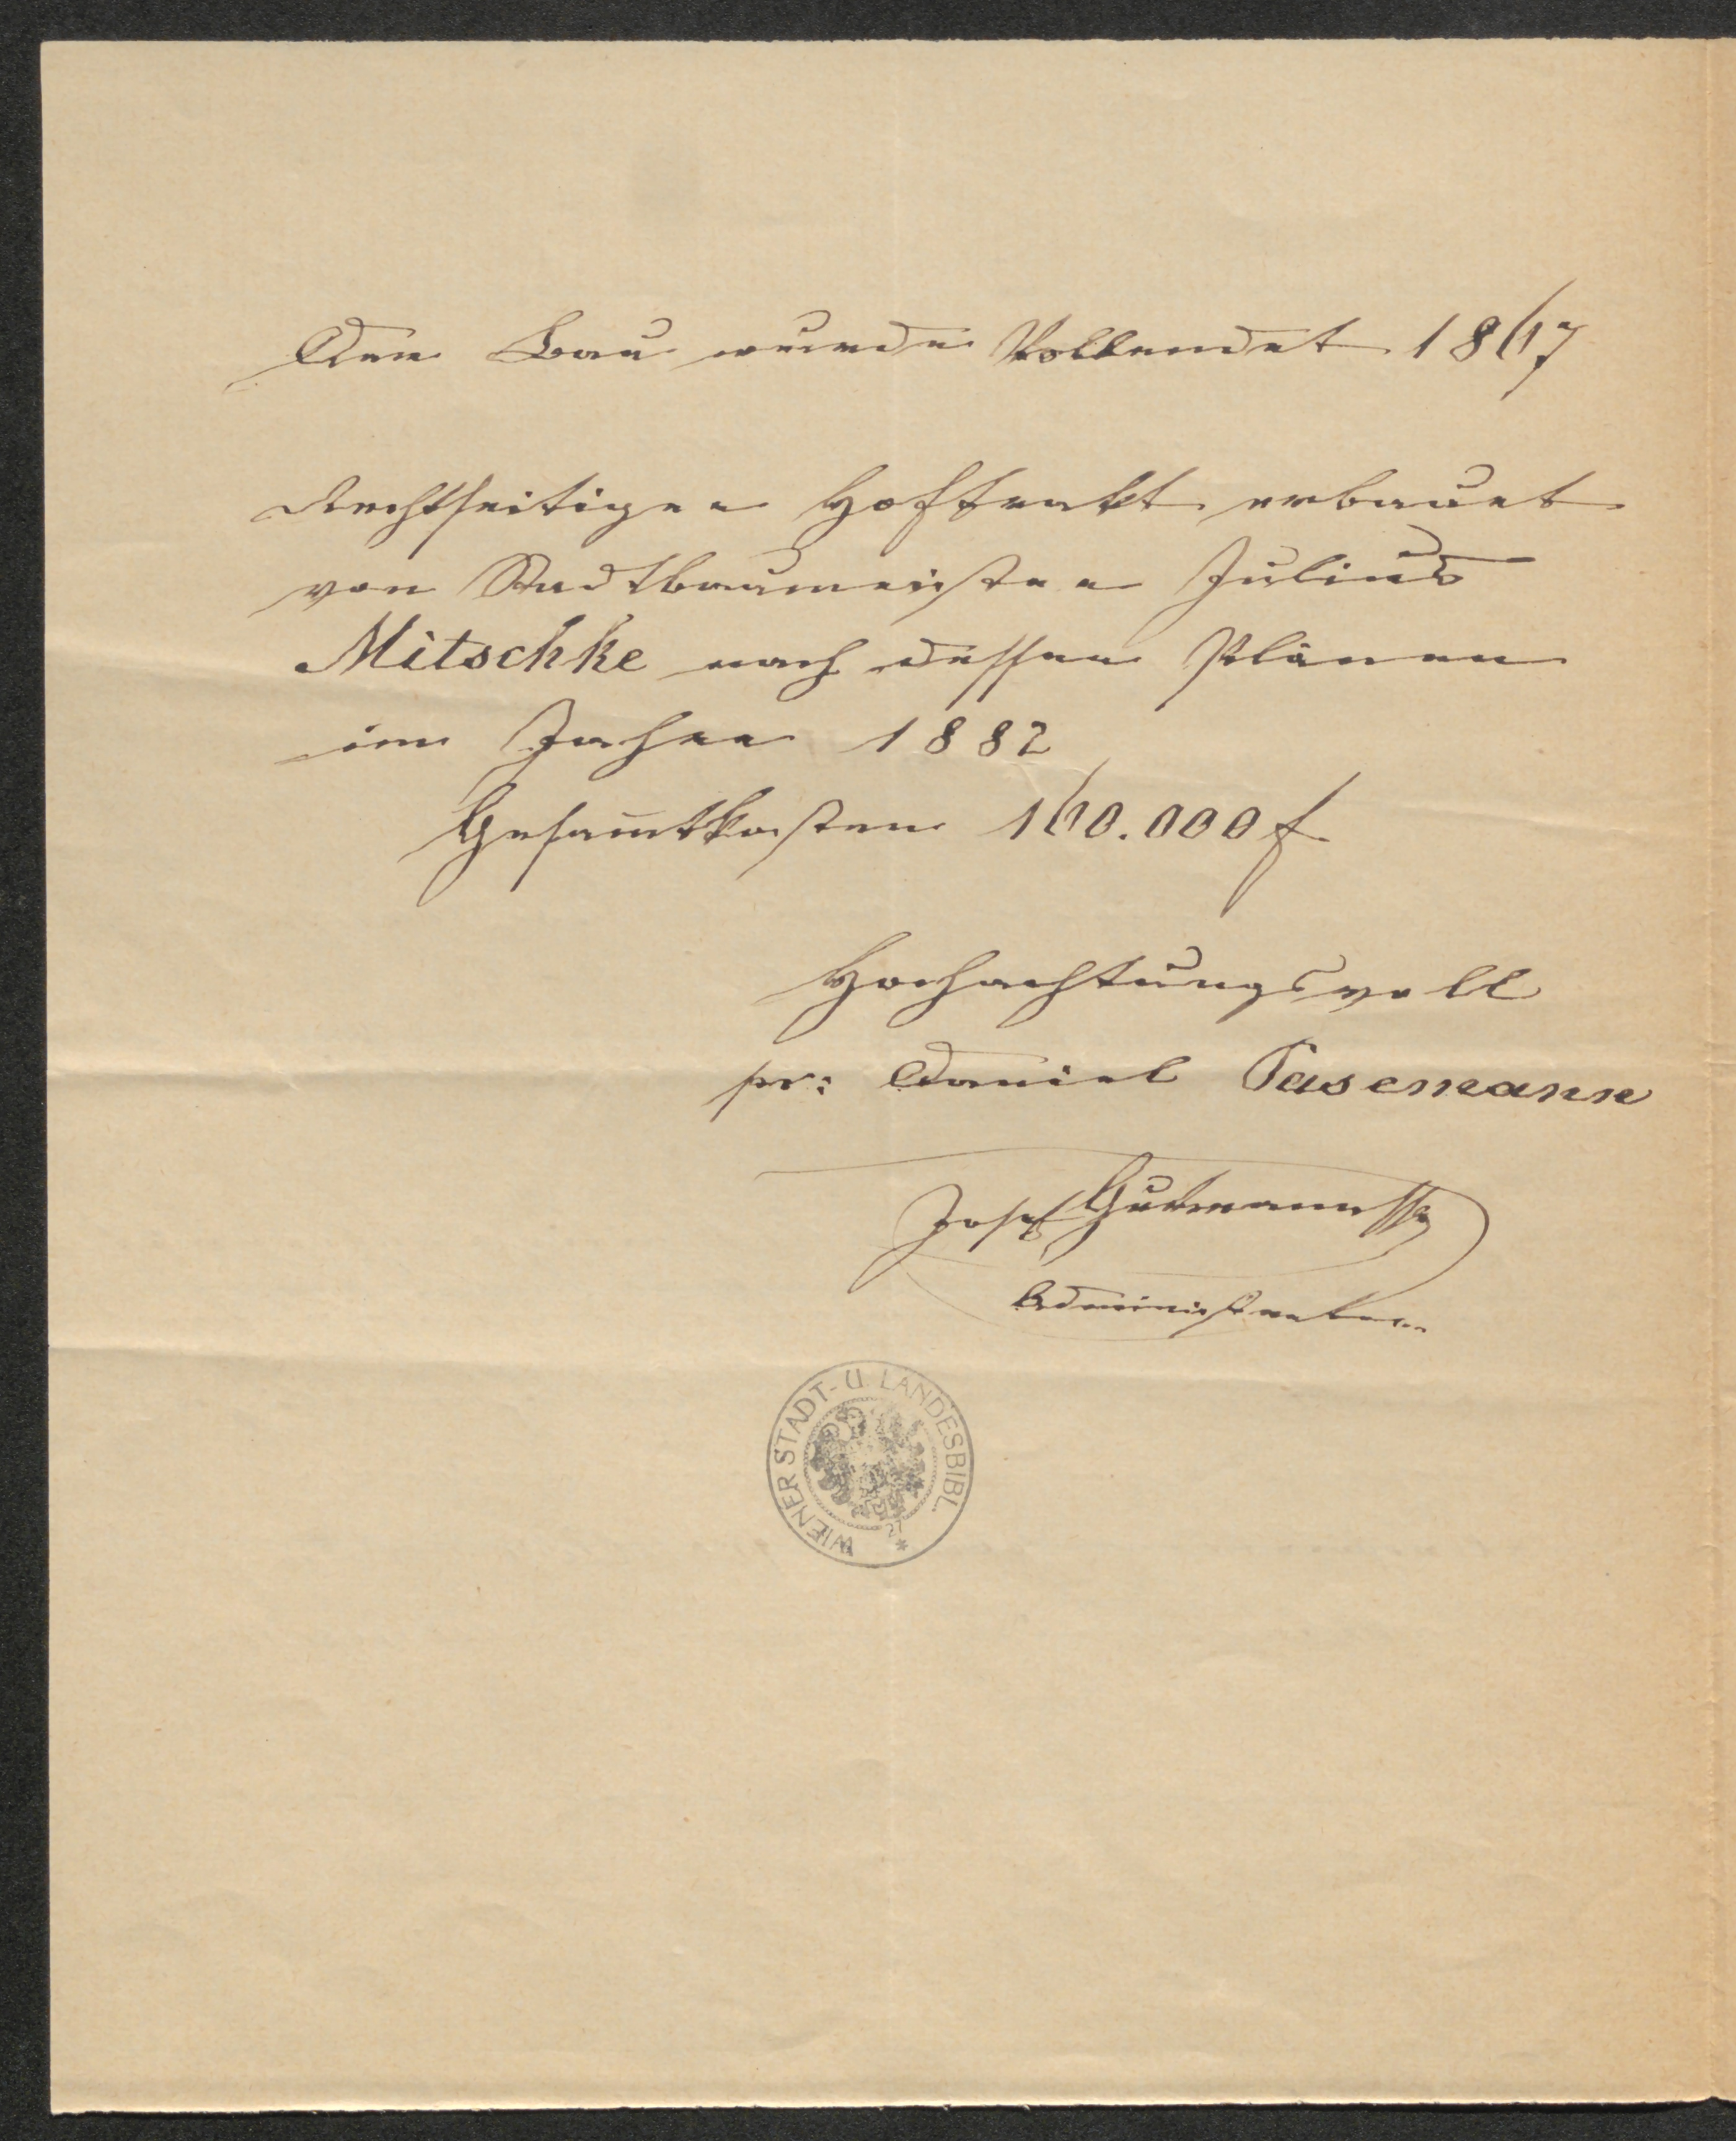 Der Bau wurde Vollendet 1867
Rechtseitiger Hoftrakt erbauet
von Stadtbaumeister Julius
Mitschke nach dessen Plänen
im Jahre 1882
Gesam̄tkosten 160.000 f
Hochachtungsvoll
pr: Daniel Pasemann
Josef Gutmann
Administrator
WIENER STADT- U. LANDESBIBL.
27